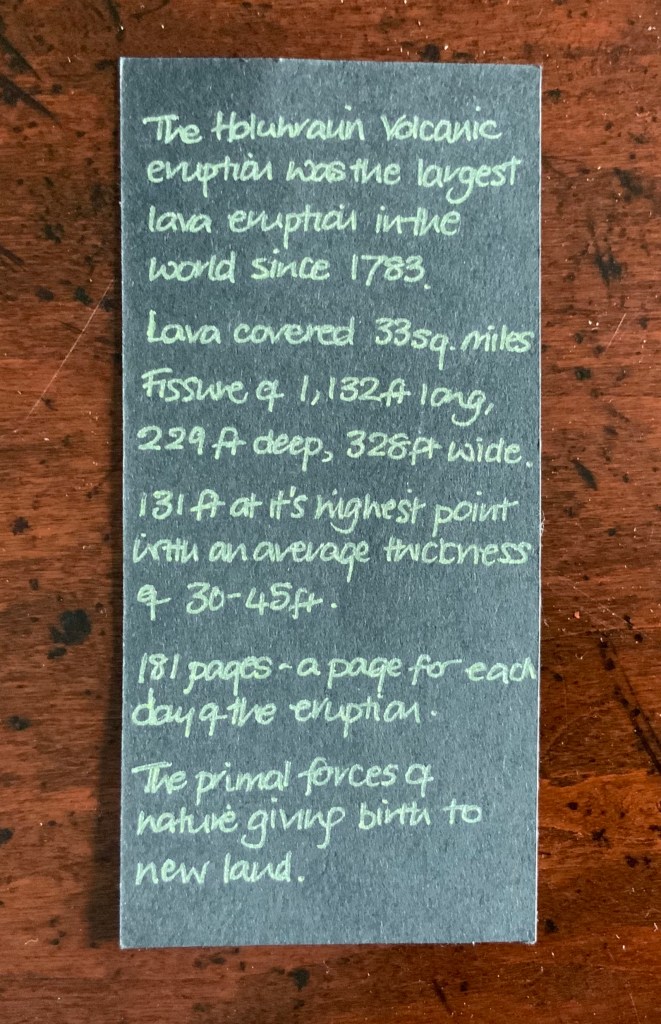 The Holuhraun Volcanic
eruption was the largest
lava eruption in the
world since 1783.
Lava covered 33sq. miles
Fissure of 1,132ft long,
229ft deep, 328ft wide.
131ft at it's highest point
with an average thickness
of 30-45ft.
181 pages - a page for each
day of the eruption.
The primal forces of
nature giving birth to
new land.